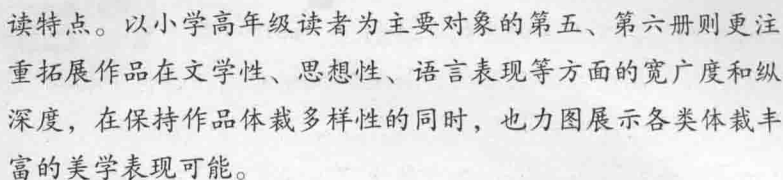 读特点。以小学高年级读者为主要对象的第五、第六册则更注
重拓展作品在文学性、思想性、语言表现等方面的宽广度和纵
深度，在保持作品体裁多样性的同时，也力图展示各类体裁丰
富的美学表现可能。